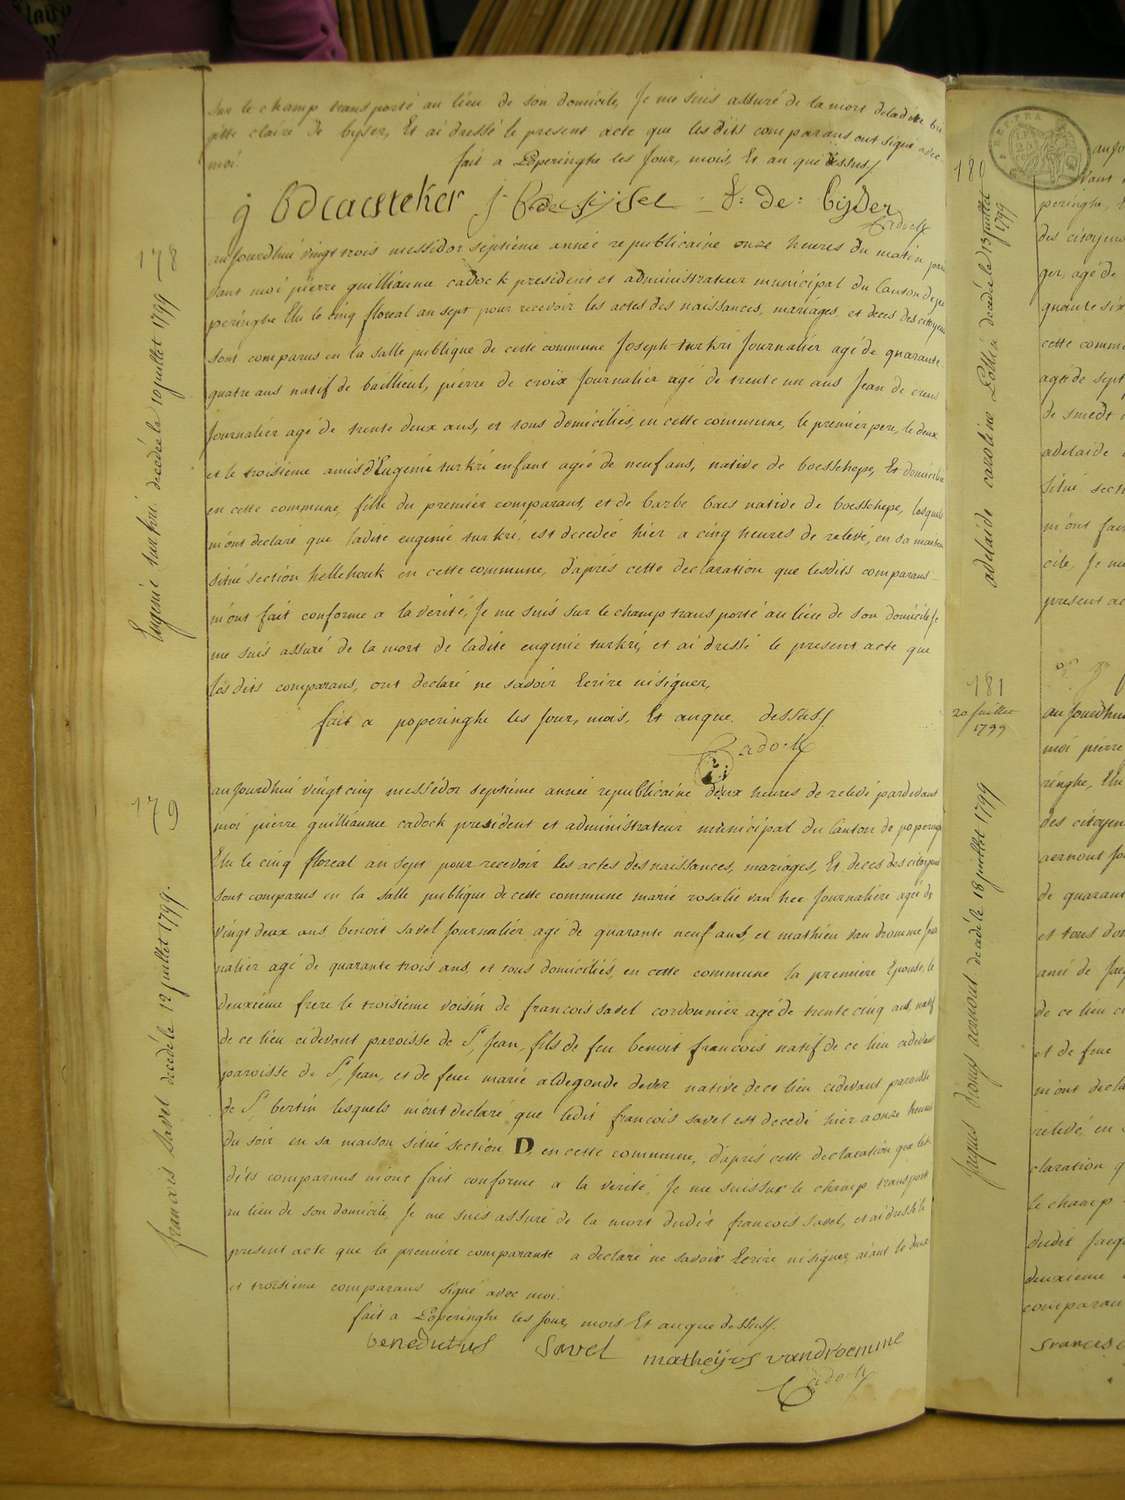 sur le champ transporté au lieu de son domicile, Je me suis assuré de la mort deladite bri
gitte claire de byser, Et ai dressé le present acte que lesdits comparans ont signé avec
moi.
fait a Poperinghe les Jour, mois, Et an que dessus
g Bdecaesteker J B de sijsel - F: de: bijser
Cadock
178
Eugenie turkri decedée le 10 juillet 1799
aujourdhui vingt trois messidor septieme année republicaine onze heures du matin parde
vant moi pierre guilliaume cadock president et administrateur municipal du Canton de po
peringhe Elu le cinq floreal an sept pour recevoir les actes des naissances, mariages, et deces des citoyens
sont comparus en la salle publique de cette commune Joseph turkri Journalier agé de quarante
quatre ans natif de baillieul, pierre de croix Journalier agé de trente un ans Jean de
Journalier agé de trente deux ans, et tous domiciliés, en cette commune, le premier pere, le deux
et le troisieme amis d'Eugenie turkri enfant agée de neuf ans, native de boesschepe, Et domicilié
en cette commune, fille du premier comparant, et de barbe baes native de boesschepe, lesquels
m'ont declaré que ladite eugenie turkri, est decedée hier a cinq heures de relevé, en sa maison
situé section hellehouk en cette commune, d'après cette declaration que lesdits comparans
m'ont fait conforme a la verité, Je me suis sur le champ transporté au lieu de son domicile Je
me suis assuré de la mort de ladite eugenie turkri, et ai dressé le present acte que
lesdits comparans, ont declaré ne savoir Ecrire ni signer,
fait a poperinghe les Jour, mois, Et an que dessus
Cadock
179
francois Savel decedé le 12 juillet 1799.
aujourdhui vingt cinq messidor septieme année republicaine deux heures de relevé pardevant
moi pierre guilliaume cadock president et administrateur municipal du Canton de poperinghe
Elu le cinq floreal an sept pour recevoir les actes des naissances, mariages, Et deces des citoyens
sont comparus en la salle publique de cette commune marie rosalie van hee Journaliere agée de
vingt deux ans benoit savel Journalier agé de quarante neuf ans et mathieu van dromme Jour
nalier agé de quarante trois ans, et tous domiciliés, en cette commune la premiere Epouse, le
deuxieme frere le troisieme voisin de francois savel cordonnier agé de trente cinq ans, natif
de ce lieu cidevant paroisse de St Jean, fils de feu benoit francois natif de ce lieu cidevant
paroisse de St Jean, et de feue marie aldegonde dever native de ce lieu cidevant paroisse
de St bertin lesquels m'ont declaré, que ledit francois savel est decedé hier a onze heures
du soir en sa maison situé section D, en cette commune, d'après cette declaration que les
dits comparans m'ont fait conforme a la verité, Je me suis sur le champ transporté
au lieu de son domicile, Je me suis assuré de la mort dudit francois savel, et ai dressé le
present acte que la premiere comparante a declaré ne savoir Ecrire ni signer, aiant le deux
et troisieme comparans signé avec moi.
fait a Poperinghe les Jour, mois Et an que dessus.
benedictus Savel matheijvs vandroemme
Cadock
180
adelaide caroline decedé le 13 juillet 1799
aujo
vant
peringhe,
des citoyens
ger, agé de
quante six
cette comm
agée de sept
de smedt
adelaide
situé sect
m'ont fai
cile, Je me
present ac
181
20 juillet
1799
Jaques aernout decedé le 18 juillet 1799
aujourdhui
moi pierre
ringhe, Elu
des citoyen
aernout Jo
de quaran
et tous dom
ami de Jaq
de ce lieu ci
et de feue
m'ont decla
relevé, en s
claration q
le champ
dudit Jaq
deuxieme
comparan